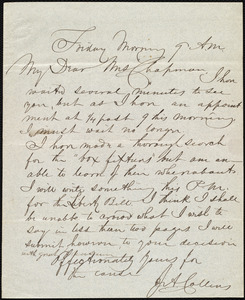 Friday Morning 9 A.M.
My Dear Mrs Chapman
I have
waited several minutes to see
you, but as I have an appoint
ment at ½ past 9 this morning
I must wait no longer.
I have made a thorough search
for the "box fixtures" but am un-
able to learn their whereabouts
I will write something this P.M.
for the Bill. I think I shall
be unable to avoid what I wish to
say in less than two pages I will
submit however to your decision
with great
Affectionately Yours for
the cause
J. A. Collins